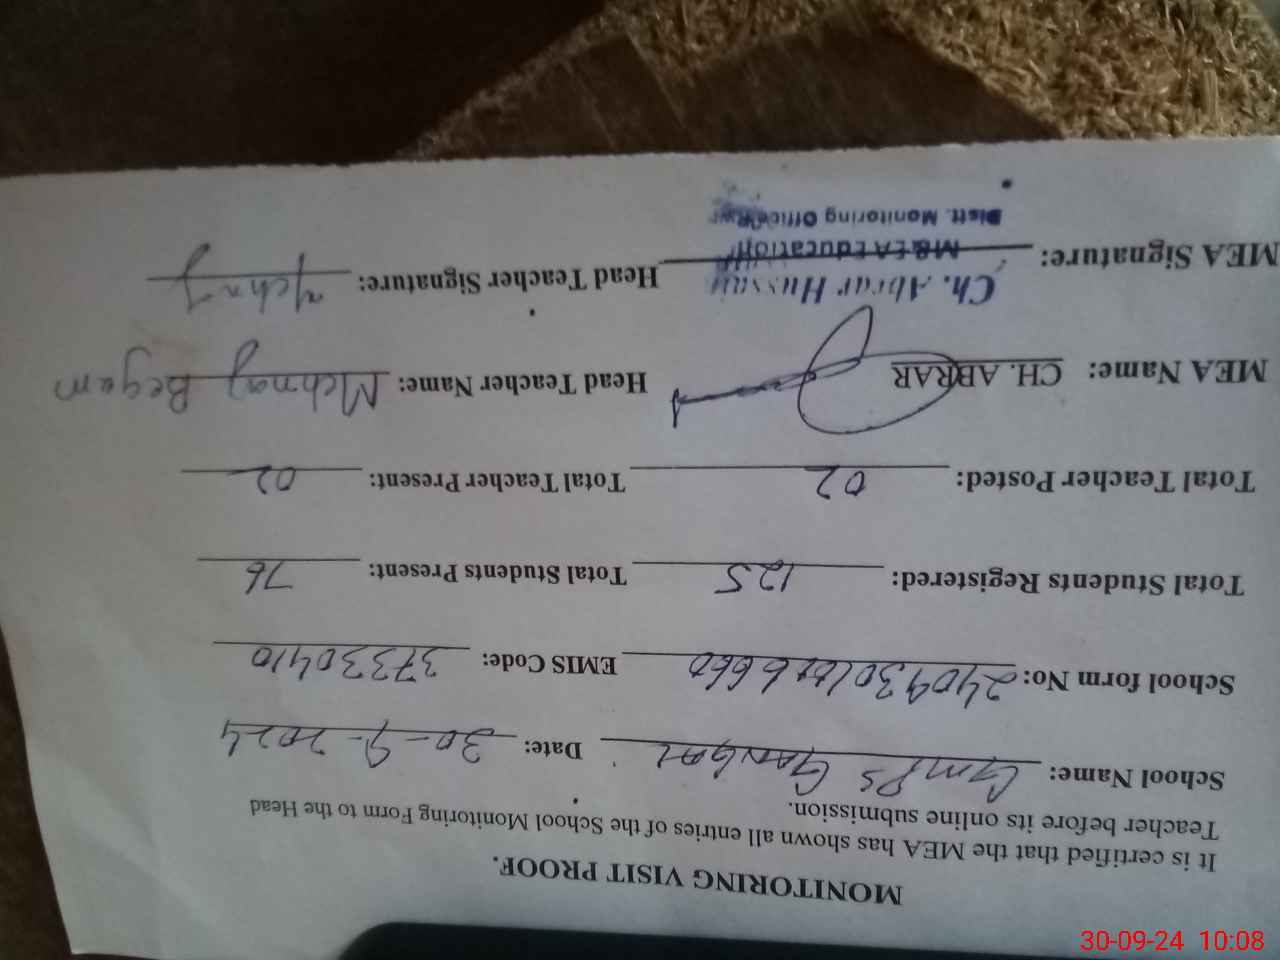 MONITORING VISIT PROOF.
It is certified that the MEA has shown all entries of the School Monitoring Form to the Head
Teacher before its online submission.
School Name: GMPS Date: 30-9-2024
School form No: EMIS Code: 37330410
Total Students Registered: 125 Total Students Present: 76
Total Teacher Posted: 02 Total Teacher Present: 02
MEA Name: CH. ABRAR Head Teacher Name: Mehnaz Begam
MEA Signature: Head Teacher Signature:
Ch. Abrar Hussain
M&EA Education
Distt. Monitoring Office
30-09-24 10:08